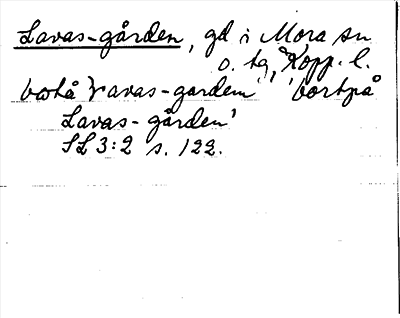 Lavas-gården, gd i Mora sn
o. tg, Kopp. l.
bortå Lavas-gardem 'bortpå
Lavas-gården'
SL 3:2 s. 122.